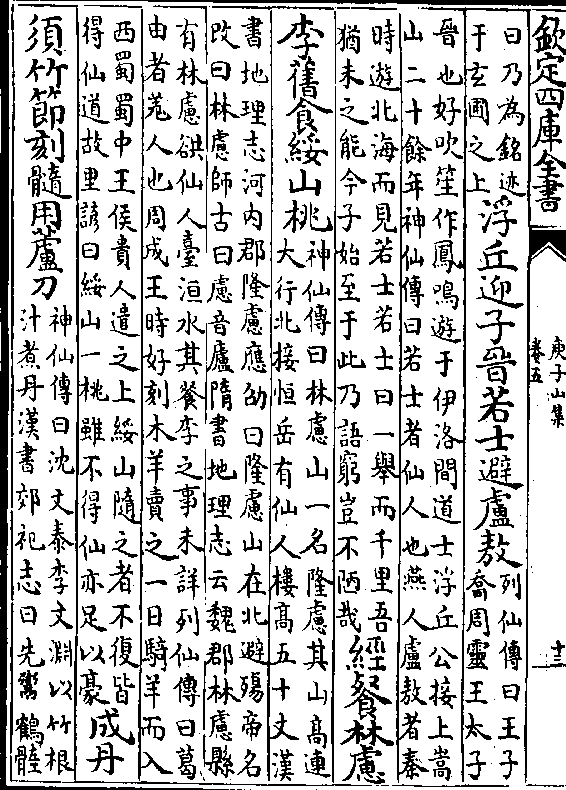 欽定四庫全書
庚子山集
卷五
十三
曰乃為銘迹
于玄圃之上
浮丘迎子晉若士避盧敖
列仙傳曰王子
喬周靈王太子
晉也好吹笙作鳳鳴遊于伊洛間道士浮丘公接上嵩
山二十餘年神仙傳曰若士者仙人也燕人盧敖者秦
時遊北海而見若士若士曰一舉而千里吾
猶未之能今子始至于此乃語窮豈不陋哉
經餐林慮
李舊食綏山桃
神仙傳曰林慮山一名隆慮其山高連
大行北接恒岳有仙人樓高五十丈漢
書地理志河内郡隆慮應劭曰隆慮山在北避殤帝名
改曰林慮師古曰慮音廬隋書地理志云魏郡林慮縣
有林慮谼仙人臺洹水其餐李之事未詳列仙傳曰葛
由者羌人也周成王時好刻木羊賣之一日騎羊而入
西蜀蜀中王侯貴人遣之上綏山隨之者不復皆
得仙道故里諺曰綏山一桃雖不得仙亦足以豪
成丹
須竹節刻髓用蘆刀
神仙傳曰沈文泰李文淵以竹根
汁煮丹漢書郊祀志曰先鬻鶴髓